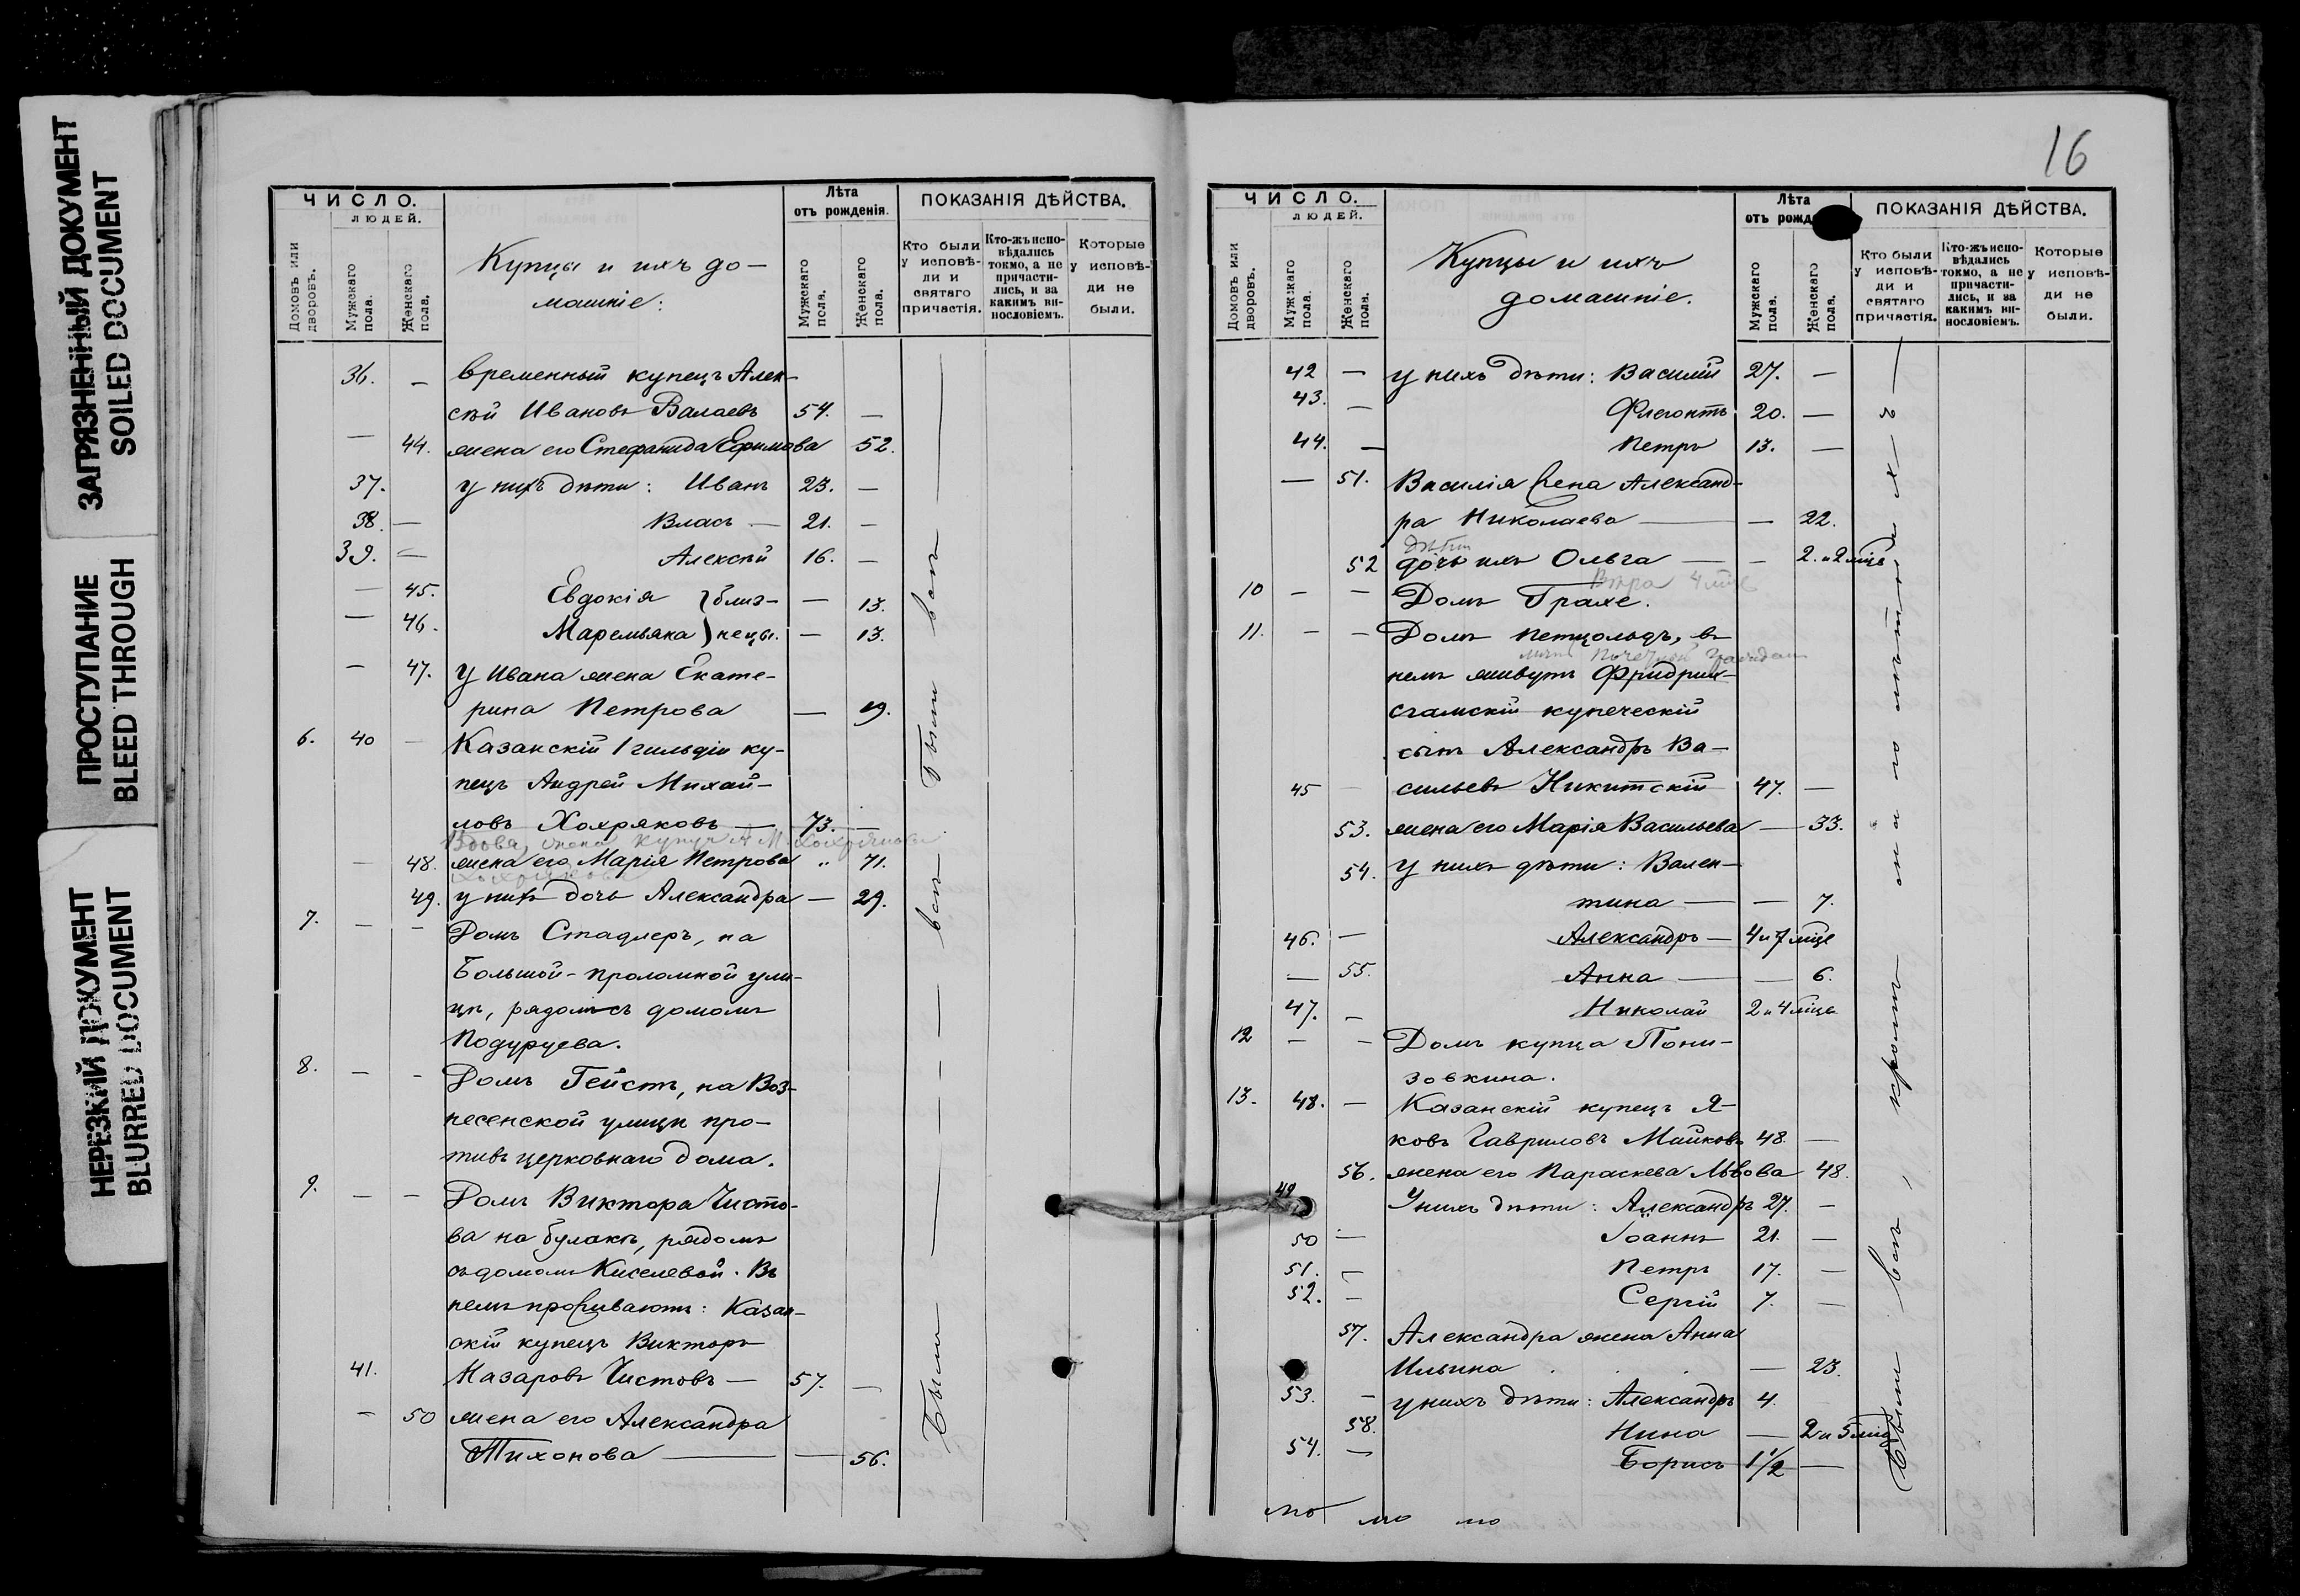 ЗАГРЯЗНЕННЫЙ ДОКУМЕНТ
SOILED DOCUMENT
ПРОСТУПАНИЕ
BLEED THROUGH
НЕРЕЗКИЙ ДОКУМЕНТ
BLURRED DOCUMENT
ЧИСЛО.
ЛЮДЕЙ.
Домовъ или дворовъ.
Мужскаго пола.
Женскаго пола.
Купцы и ихъ до-
машніе:
Лѣта
отъ рожденія.
Мужскаго пола.
Женскаго пола.
ПОКАЗАНІЯ ДѢЙСТВА.
Кто были у исповѣ-ди и святаго причастія.
Кто-жъ испо-вѣдались токмо, а не причасти-лись, и за какимъ ви-нословіемъ.
Которые у исповѣ-ди не были.
36. — временный купецъ Алек-
сѣй Ивановъ Валаевъ 54. —
— 44. жена его Стефанида Ефимова 52.
37. у нихъ дѣти: Иванъ 23. —
38. — Власъ — 21. —
39. — Алексѣй 16. —
— 45. Евдокія } близ- — 13.
— 46. Маремьяна } нецы. — 13.
— 47. У Ивана жена Екате-
рина Петрова — 19.
6. 40 — Казанскій 1 гильдіи ку-
пецъ Андрей Михай-
ловъ Хохряковъ — 73. —
Вдова, жена купца А М Хохрякова
— 48. жена его Марія Петрова „ 71.
Хохрякова
49. у нихъ дочь Александра — 29.
7. — — Домъ Стадлеръ, на
Большой-проломной ули-
цѣ, рядомъ съ домомъ
Подуруева.
8. — - Домъ Гейстъ, на Воз-
несенской улицѣ про-
тивъ церковнаго дома.
9. — — Домъ Виктора Чисто-
ва на булакѣ, рядомъ
съ домомъ Киселевой. Въ
немъ проживаютъ: Казан-
скій купецъ Викторъ
41. Назаровъ Чистовъ — 57. —
— 50 жена его Александра
Тихонова — — 56.
Были всѣ
Были всѣ
16
ЧИСЛО.
ЛЮДЕЙ.
Домовъ или дворовъ.
Мужскаго пола.
Женскаго пола.
Купцы и ихъ
домашніе.
Лѣта
отъ рожд
Мужскаго пола.
Женскаго пола.
ПОКАЗАНІЯ ДѢЙСТВА.
Кто были у исповѣ-ди и святаго причастія.
Кто-жъ испо-вѣдались токмо, а не причасти-лись, и за какимъ ви-нословіемъ.
Которые у исповѣ-ди не были.
42 — у нихъ дѣти: Василій 27. —
43. — Флегонтъ 20. —
44. — Петръ 13. —
— 51. Василія жена Александ-
ра Николаева — — 22.
дѣти
52 дочь ихъ Ольга — — 2. и 2 мѣся
Вѣра 4 мѣс
10 — — Домъ Грахе.
11. — — Домъ Петцольдъ, въ
личн Почетной Граждан
немъ живутъ Фридрих-
сгамскій купеческій
сынъ Александръ Ва-
45 — сильевъ Никитскій 47. —
53. жена его Марія Васильева — 33.
54. у нихъ дѣти: Вален-
тина — — 7.
46. — Александръ — 4 и 7 мѣс
— 55. Анна — — 6.
47. — Николай 2 и 4 мѣся
12 — — Домъ купца Пони-
зовкина.
13. 48. — Казанскій купецъ Я-
ковъ Гавриловъ Майковъ 48. —
56. жена его Параскева Львова 48.
49 У нихъ дѣти: Александръ 27. —
50 — Іоаннъ 21. —
51. — Петръ 17. —
52. — Сергій 7. —
57. Александра жена Анна
Ильина — 23.
53. — у нихъ дѣти: Александръ 4.
58. Нина — 2 и 5 мѣс
54. — Борисъ 1 1/2 —
Были всѣ, кромѣ малолѣтнихъ